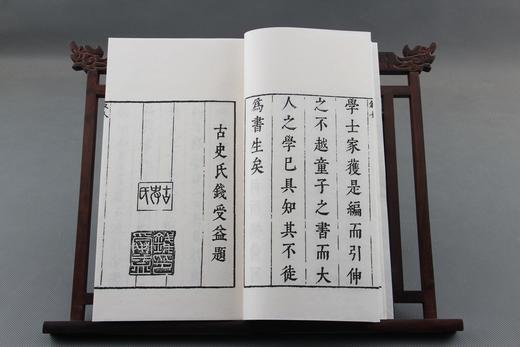 學士家獲是編而引伸
之不越童子之書而大
人之學已具知其不徒
爲書生矣
古史氏錢受益題